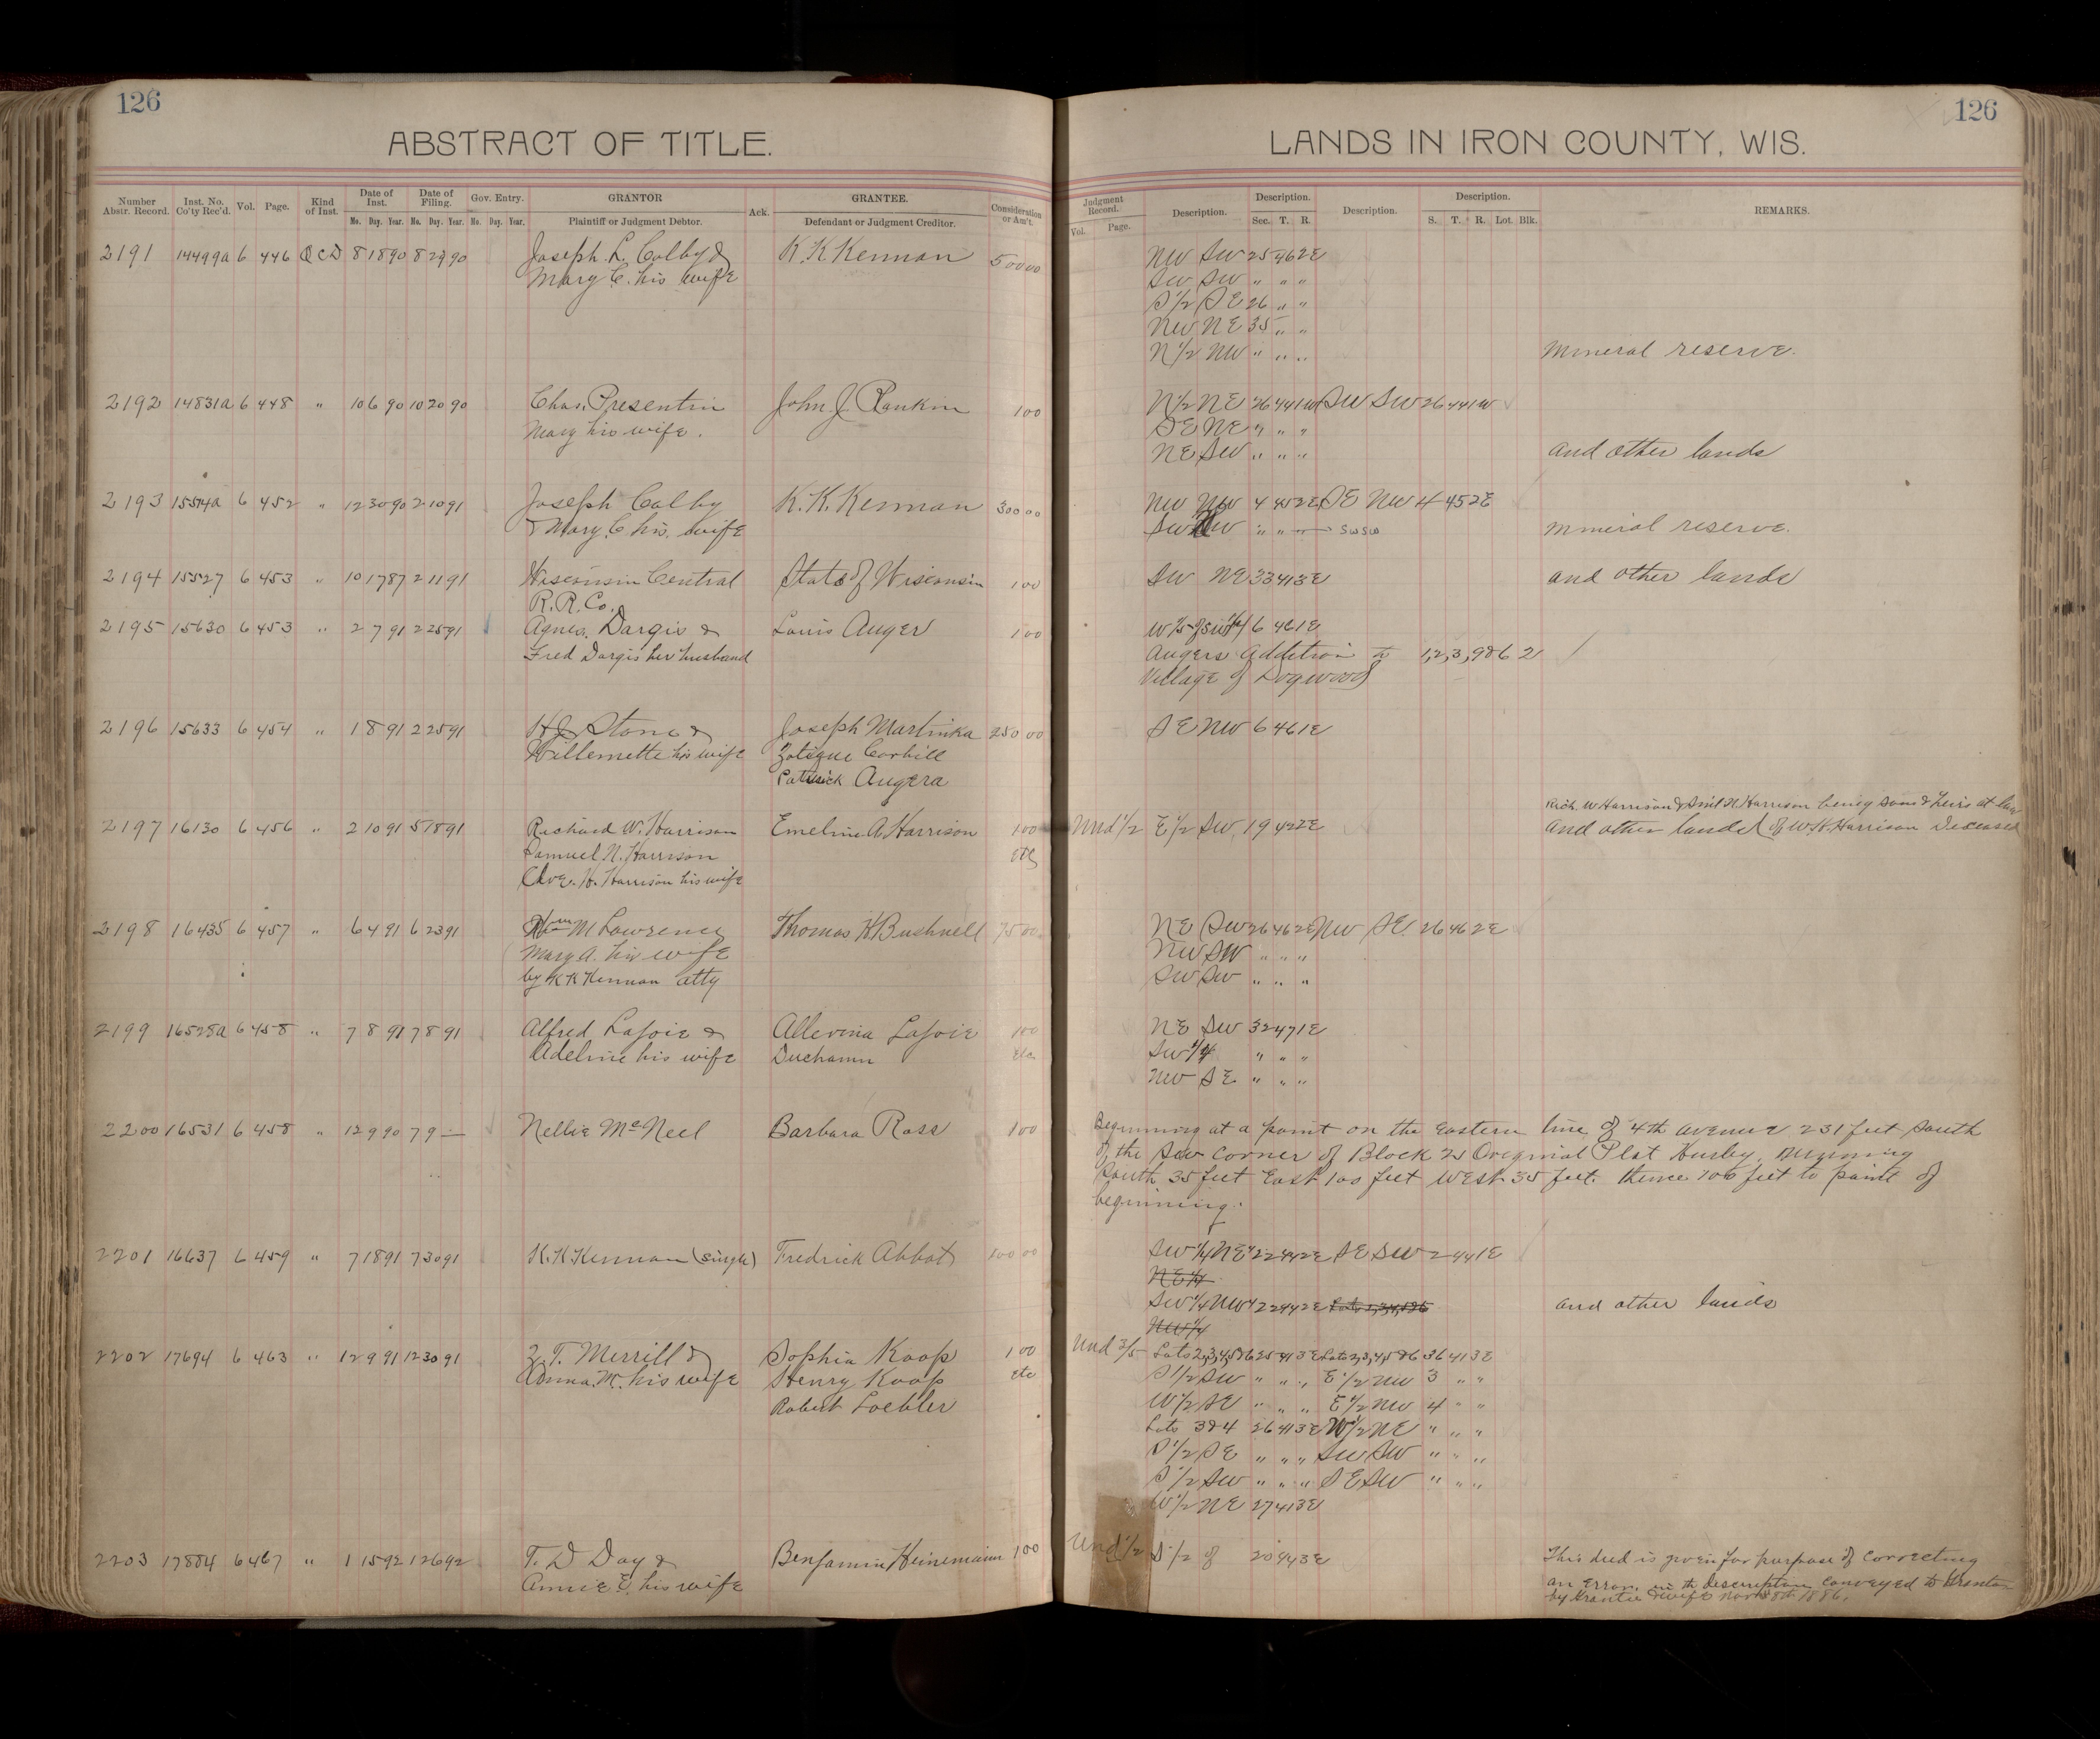 126
126
ABSTRACT OF TITLE.
LANDS IN IRON COUNTY, WIS.
Number Abstr. Record. Inst. No. Co'ty Rec'd. Vol. Page. Kind of Inst. Date of Inst. Date of Filing. Gov. Entry. GRANTOR Ack. GRANTEE. Consideration or Am't. Judgment Record. Description. Description. Description. Description. REMARKS.
Mo. Day. Year. Mo. Day. Year. Mo. Day. Year. Plaintiff or Judgment Debtor. Defendant or Judgment Creditor. Vol. Page. Sec. T. R. S. T. R. Lot. Blk.
2191 14499a 6 446 QCD 8 18 90 8 29 90 Joseph L. Colby & K.K. Kennan 500 00 NW SW 25 46 2E
Mary C. his wife SW SW " " "
S 1/2 SE 26 " "
NW NE 35 " "
N 1/2 NW " " " mineral reserve.
2192 14831a 6 448 " 10 6 90 10 20 90 Chas. Presentin John J. Rankin 1 00 N 1/2 NE 26 44 1W SW SW 26 44 1W
Mary his wife. SE NE " " "
NE SW " " " and other lands
2193 15514a 6 452 " 12 30 90 2 10 91 Joseph Colby K.K. Kennan 300 00 NW NW 4 45 2E SE NW 4 45 2E
& Mary C his wife SW NW " " " SW SW mineral reserve.
2194 15527 6 453 " 10 17 87 2 11 91 Wisconsin Central State of Wisconsin 1 00 SW NE 33 41 3E and other lands
R.R. Co.
2195 15630 6 453 " 2 7 91 2 25 91 Agnes Dargis & Louis Auger 1 00 6 46 1E
Fred Dargis her husband Augers Addition to 1,2,3,9&6 2
Village of Dogwood
2196 15633 6 454 " 1 8 91 2 25 91 HJ Stone & Joseph Martinka 250 00 SE NW 6 46 1E
Willemette his wife Zotique Corbill
Patrick Augera
Rich. W Harrison & Sml N Harrison being sons & heirs at law
2197 16130 6 456 " 2 10 91 5 18 91 Richard W. Harrison Emeline A Harrison 1 00 Und 1/2 E 1/2 SW 19 42 2E and other lands of W.H. Harrison Deceased
Samuel N. Harrison etc
H. Harrison his wife
2198 16435 6 457 " 6 4 91 6 23 91 Wm M Lawrence Thomas H Bushnell 75 00 NE SW 26 46 2E NW SE. 26 46 2E
Mary A. his wife NW SW " " "
by K K Kennan atty SW SW " " "
2199 16528a 6 458 " 7 8 91 7 8 91 Alfred LaJoie & Allevina LaJoie 1 00 NE SW 32 47 1E
Adeline his wife Duchamn etc SW 1/4 " " "
NW SE " " "
2200 16531 6 458 " 12 9 90 7 9 — Nellie McNeel Barbara Ross 1 00 Beginning at a point on the Eastern line of 4th avenue 231 feet South
of the SW corner of Block 21 Original Plat Hurley, running
South 35 feet East 100 feet West 35 feet. thence 100 feet to point of
beginning.
2201 16637 6 459 " 7 18 91 7 30 91 K.K Kennan (single) Fredrick Abbot 100 00 SW 1/4 NE 1/4 22 44 2E SE SW 2 44 1E
NE 1/4
SW 1/4 NW 1/4 22 44 2E and other lands
NW 1/4
2202 17694 6 463 " 12 9 91 12 30 91 Z.T. Merrill & Sophia Koop 1 00 Und 2/5 Lots 2,3,4,5&6 25 41 3E Lots 2,3,4,5&6 36 41 3E
Anna M. his wife Henry Koop etc S 1/2 SW " " " E 1/2 NW 3 " "
Robert Loebler W 1/2 SE " " " E 1/2 NW 4 " "
Lots 3&4 26 41 3E W 1/2 NE " " "
S 1/2 SE " " " SW SW " " "
S 1/2 SW " " " SE SW " " "
W 1/2 NE 27 41 3E
2203 17884 6 467 " 1 15 92 1 26 92 T. D Day & Benjamin Heinemann 1 00 Und 1/2 S 1/2 of 20 43 E This deed is given for purpose of correcting
Annie E. his wife an error in the description conveyed to Grantor
by Grantee & wife 8th 1886.